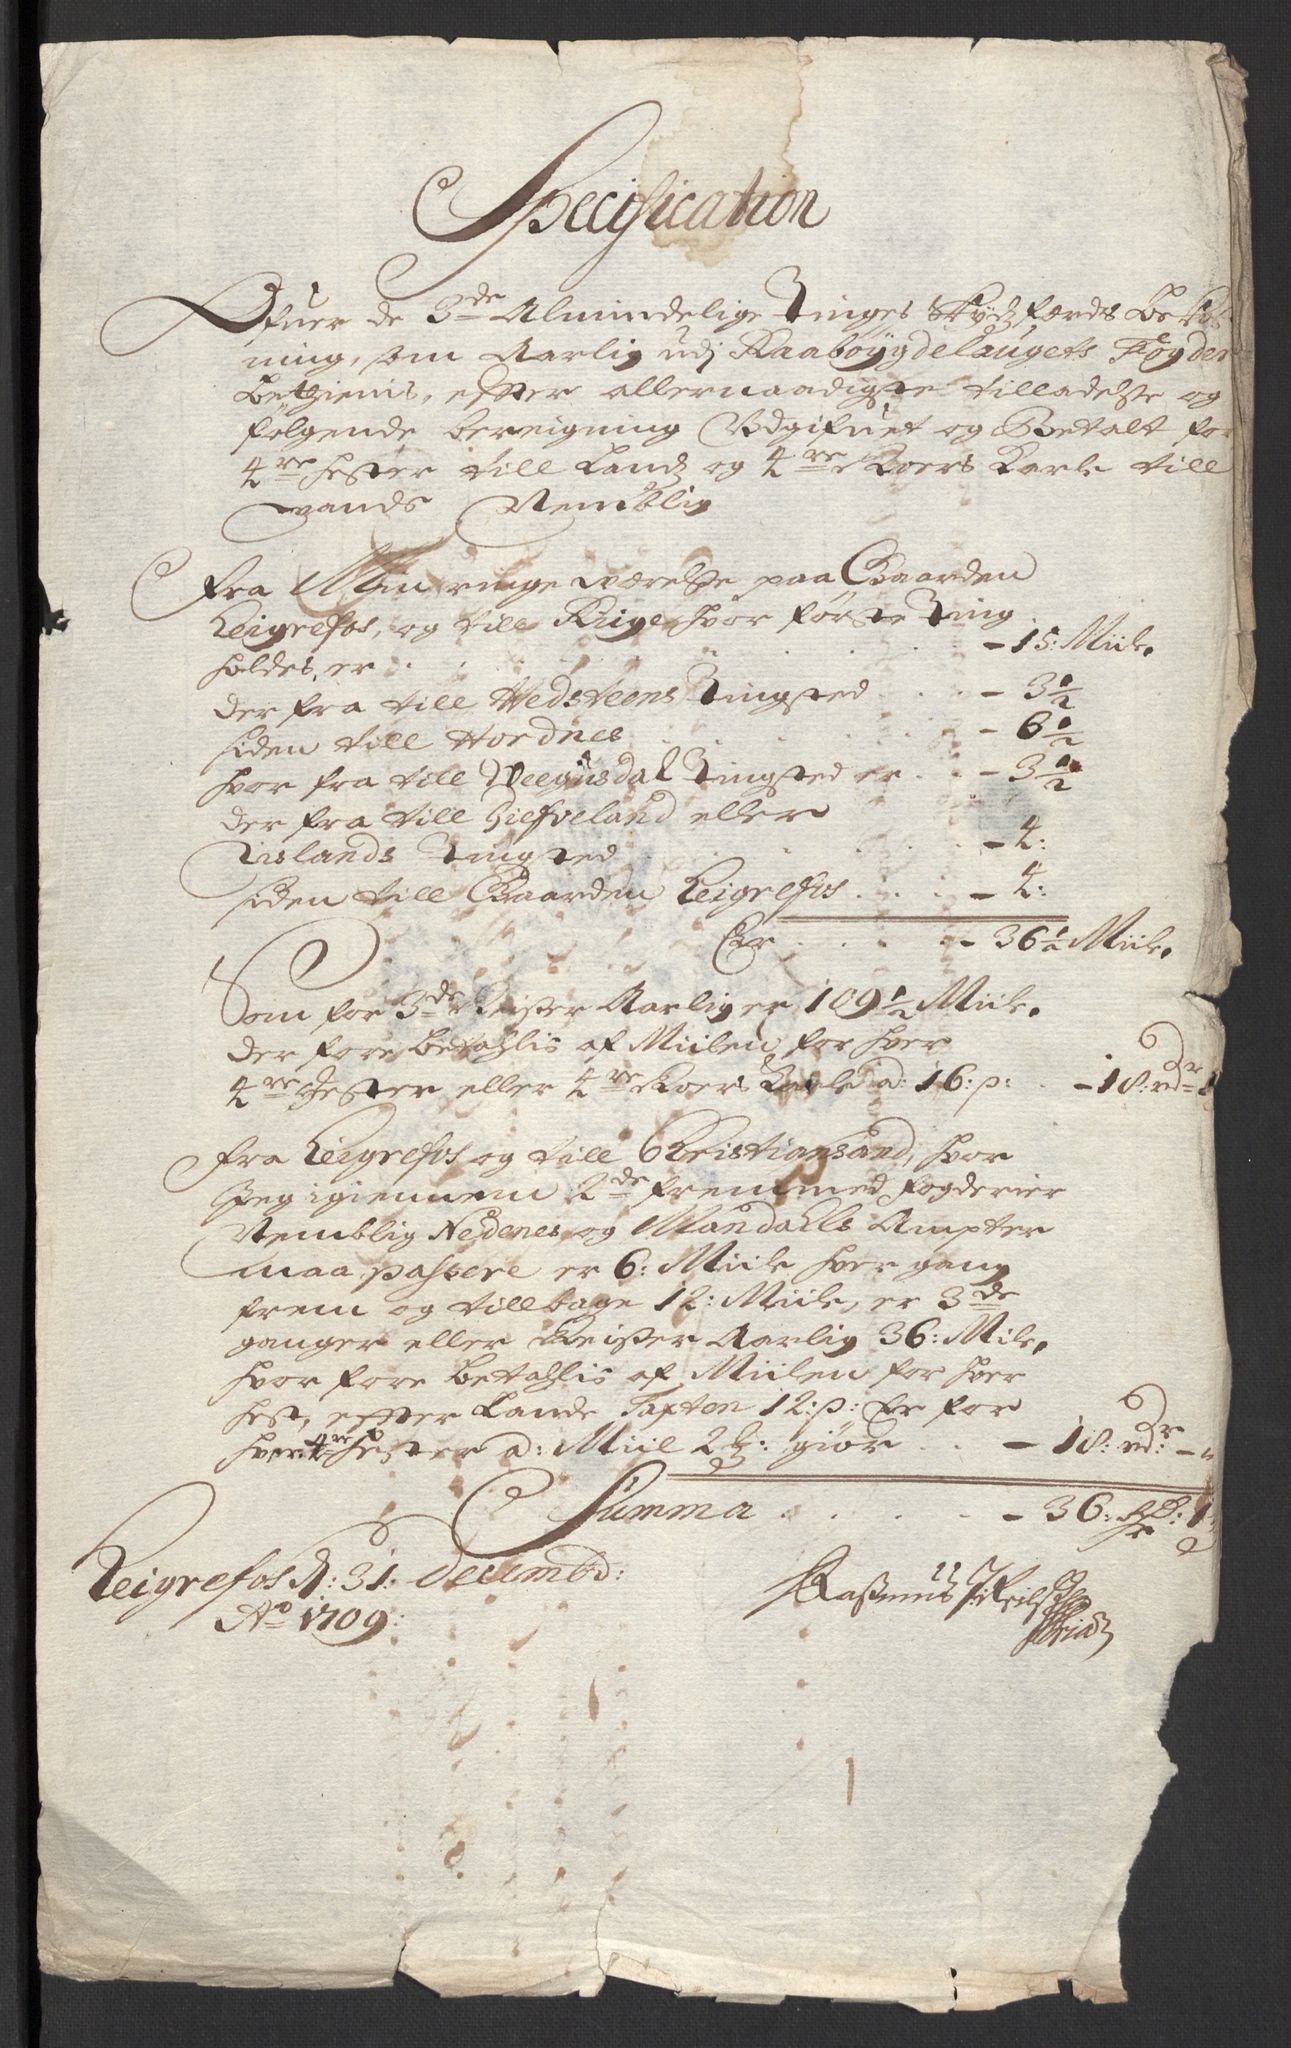 Specification
Ofuer de 3de Almindelige Tinges Skydtzfærds Bekost
ning, som Aarlig udj Raabøygdelaugets Fogderi
betienis, efter allernaadigste tilladelse og
følgende bereigning Udgifuet og Betalt for
4re hester till Landz og 4re Roers Karle till
vands Nemblig
Fra Min ringe værelse paa Gaarden
Reigrefos, og till Riige hvor første Ting
holdes, er . . . . . . - 15: Miile.
der fra till Hedsteens Tingsted . . . - 3 1/2
siden till Hordnes . . . . . - 6 1/2
hvor fra till Veegusdal Tingsted er . . - 3 1/2
der fra till Giefveland eller
Tislands Tingsted . . . . . - 4:
siden till Gaarden Reigrefos . . . . - 4:
Er . . . . - 36 1/2 Miile.
Som for 3de Reiser Aarlig er 109 1/2 Miile.
der fore betahlis af Miilen for hver
4re Hester eller 4re Roers Karle a: 16: s: . . - 18: rdr 1
Fra Reigrefos og till Christiansand, hvor
Jeg igiennem 2de fremmed fogderier
Nemblig Nedenes og Mandahls Ampter
maa passere er 6: Miile hver gang
frem og tillbage 12: Miile, er 3de
ganger eller Reiser Aarlig 36: Mile.
hvor fore betahlis af Miilen for hver
hest, efter Lande Taxten 12: s: Er for
hver 4re hester a: Miil 2 giør . . - 18: rdr: -
Summa . . . . . - 36: 1
Reigrefos d: 31: Decembr:
Ao 1709:
Rasmus